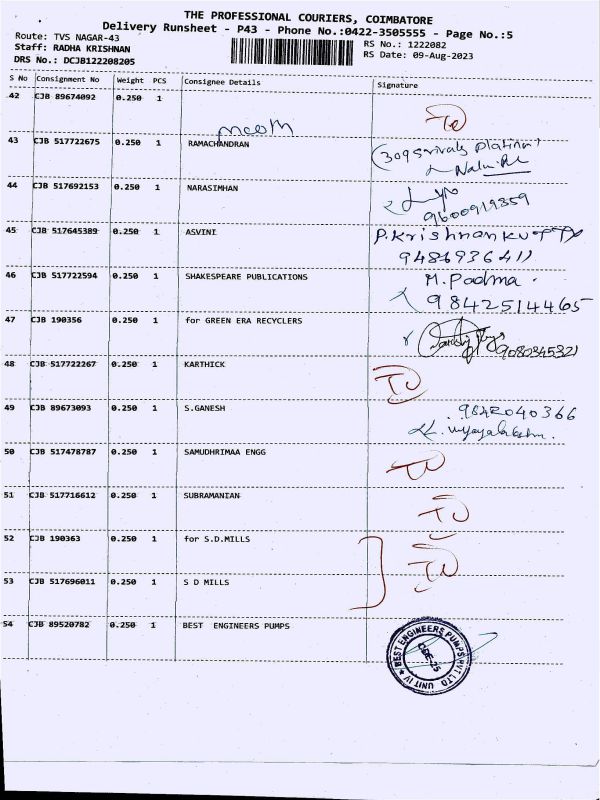 THE PROFESSIONAL COURIERS, COIMBATORE
Delivery Runsheet - P43 - Phone No.:0422-3505555 - Page No.:5
Route: TVS NAGAR-43
Staff: RADHA KRISHNAN
DRS No.: DCJB122208205
RS No.: 1222082
RS Date: 09-Aug-2023
S No Consignment No Weight PCS Consignee Details Signature
42 CJB 89674092 0.250 1
43 CJB 517722675 0.250 1 RAMACHANDRAN
44 CJB 517692153 0.250 1 NARASIMHAN 9600919359
45 CJB 517645389 0.250 1 ASVINI P.Krishnankutty
9486936411
46 CJB 517722594 0.250 1 SHAKESPEARE PUBLICATIONS M. Padma.
9842514465
47 CJB 190356 0.250 1 for GREEN ERA RECYCLERS 9080345321
48 CJB 517722267 0.250 1 KARTHICK
49 CJB 89673093 0.250 1 S.GANESH 9842040366
50 CJB 517478787 0.250 1 SAMUDHRIMAA ENGG
51 CJB 517716612 0.250 1 SUBRAMANIAN
52 CJB 190363 0.250 1 for S.D.MILLS
53 CJB 517696011 0.250 1 S D MILLS
54 CJB 89520782 0.250 1 BEST ENGINEERS PUMPS
BEST ENGINEERS PUMPS PVT LTD UNIT IV
CBE-25